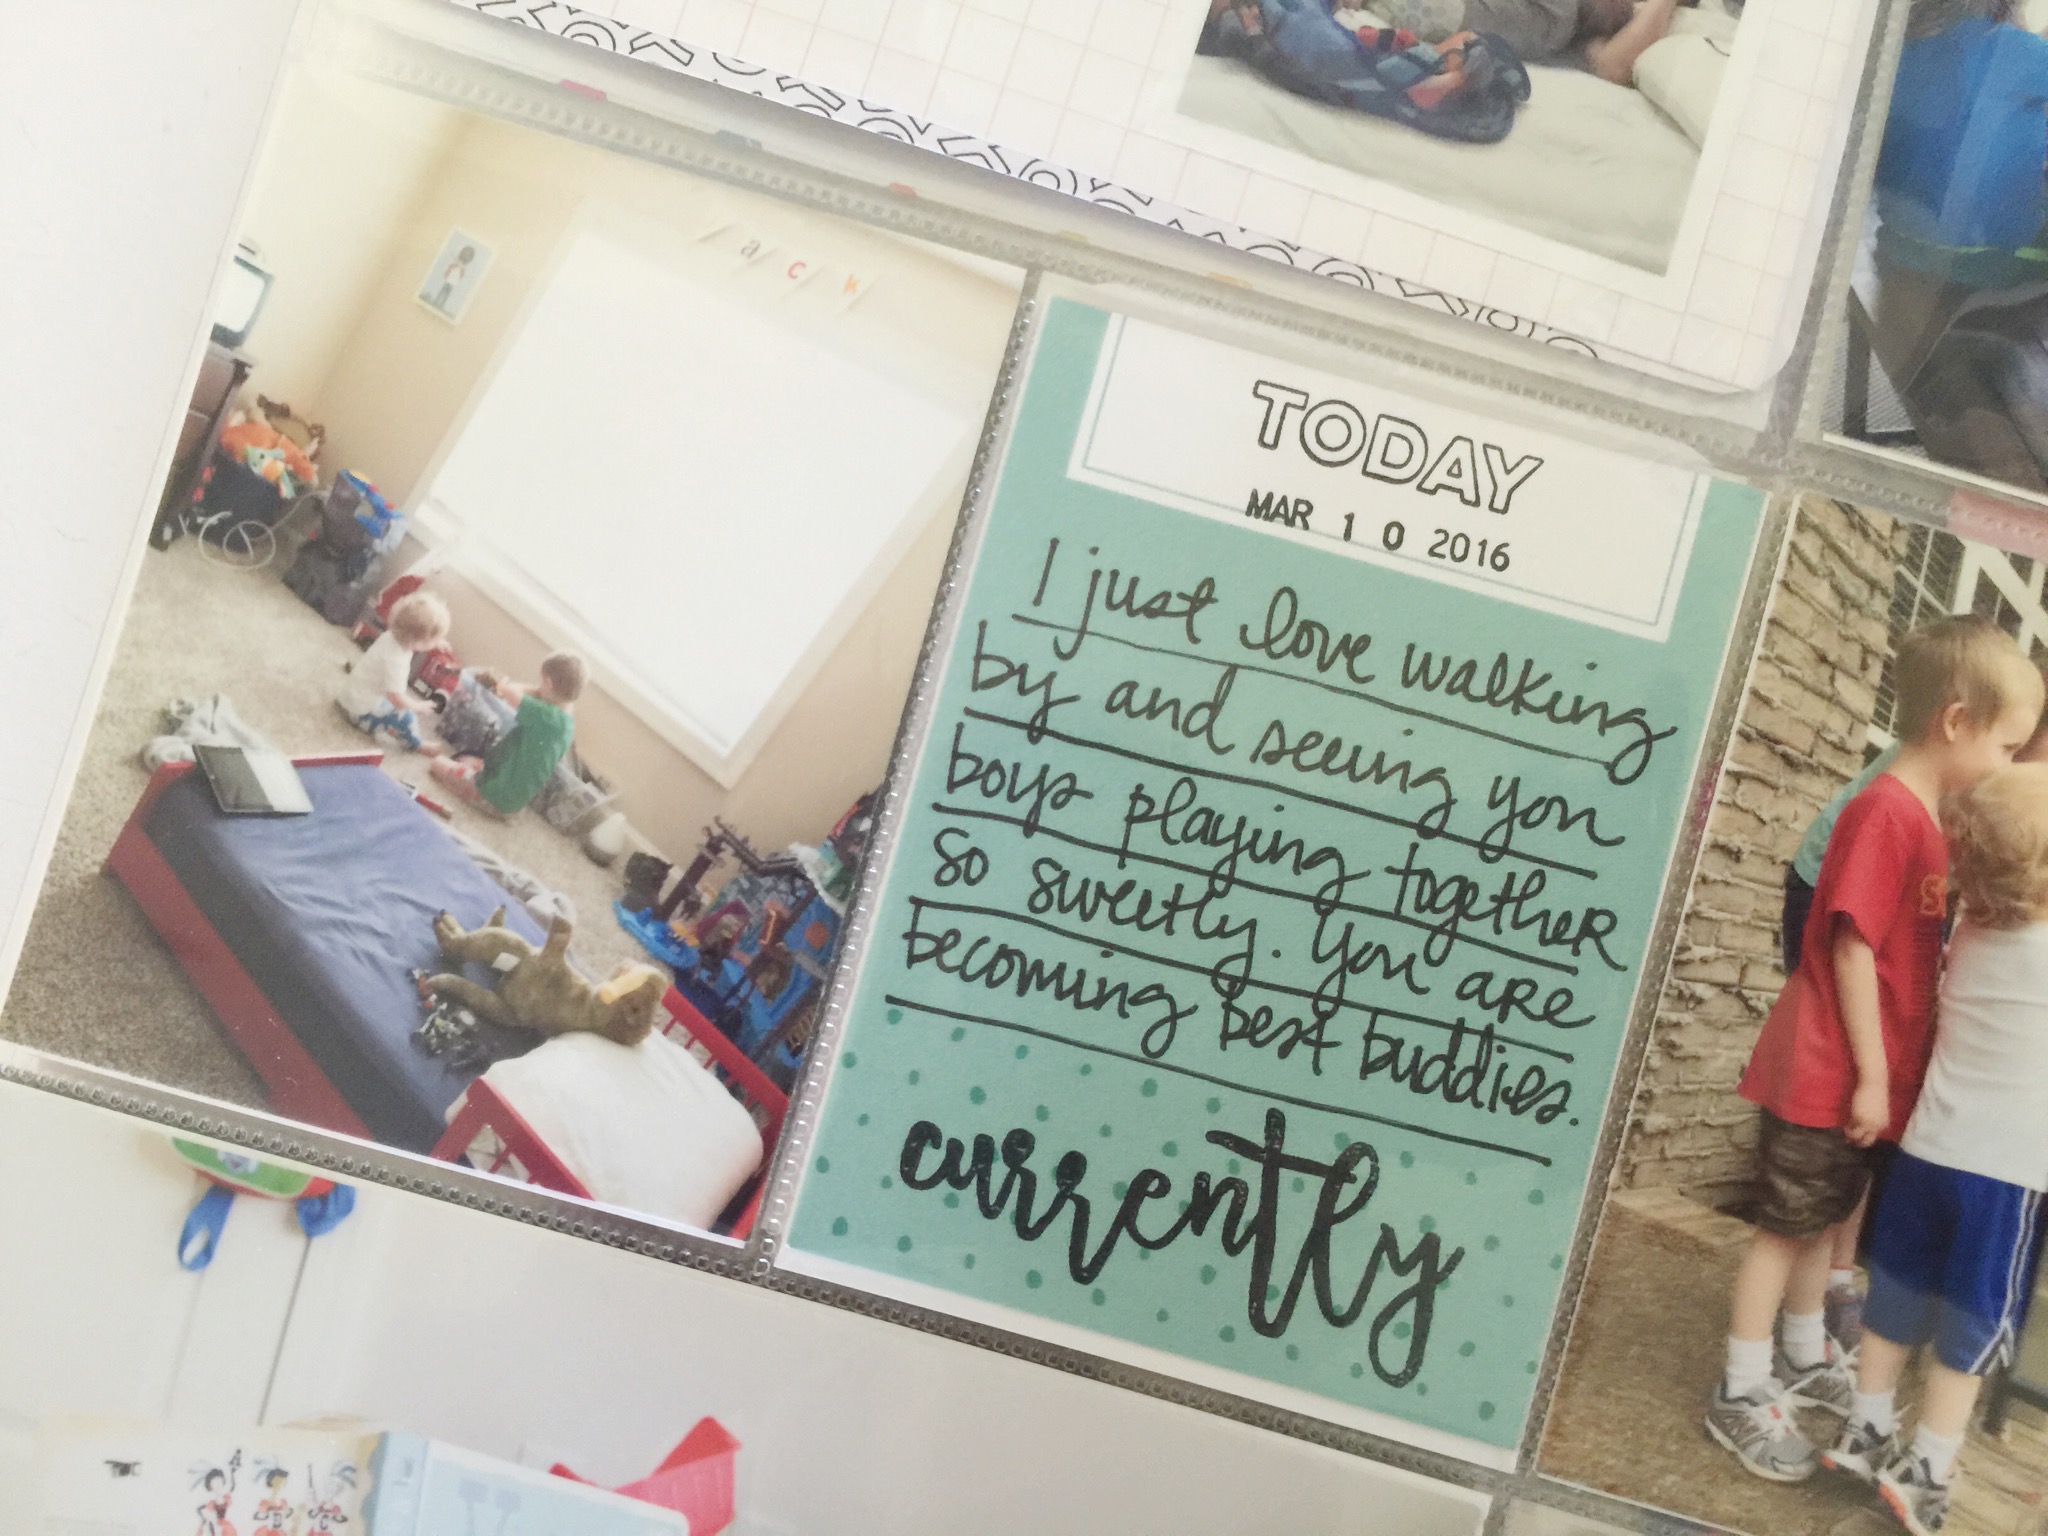 a c w
TODAY
MAR 10 2016
I just love walking
by and seeing you
boys playing together
so sweetly. You are
becoming best buddies.
currently